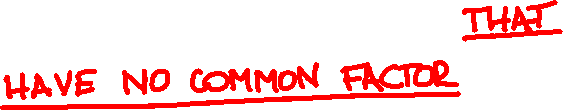 THAT
HAVE NO COMMON FACTOR